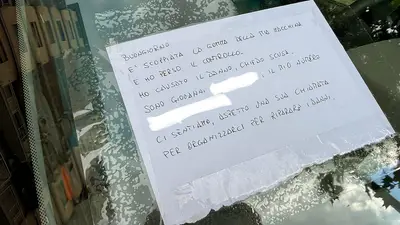 BUONGIORNO
E' SCOPPIATA LA GOMMA DELLA MIA MACCHINA
E HO PERSO IL CONTROLLO.
HO CAUSATO IL DANNO, CHIEDO SCUSA.
SONO GIOVANNI , IL MIO NUMERO
CI SENTIAMO, ASPETTO UNA SUA CHIAMATA
PER ORGANIZZARCI PER RIPARARE I DANNI.